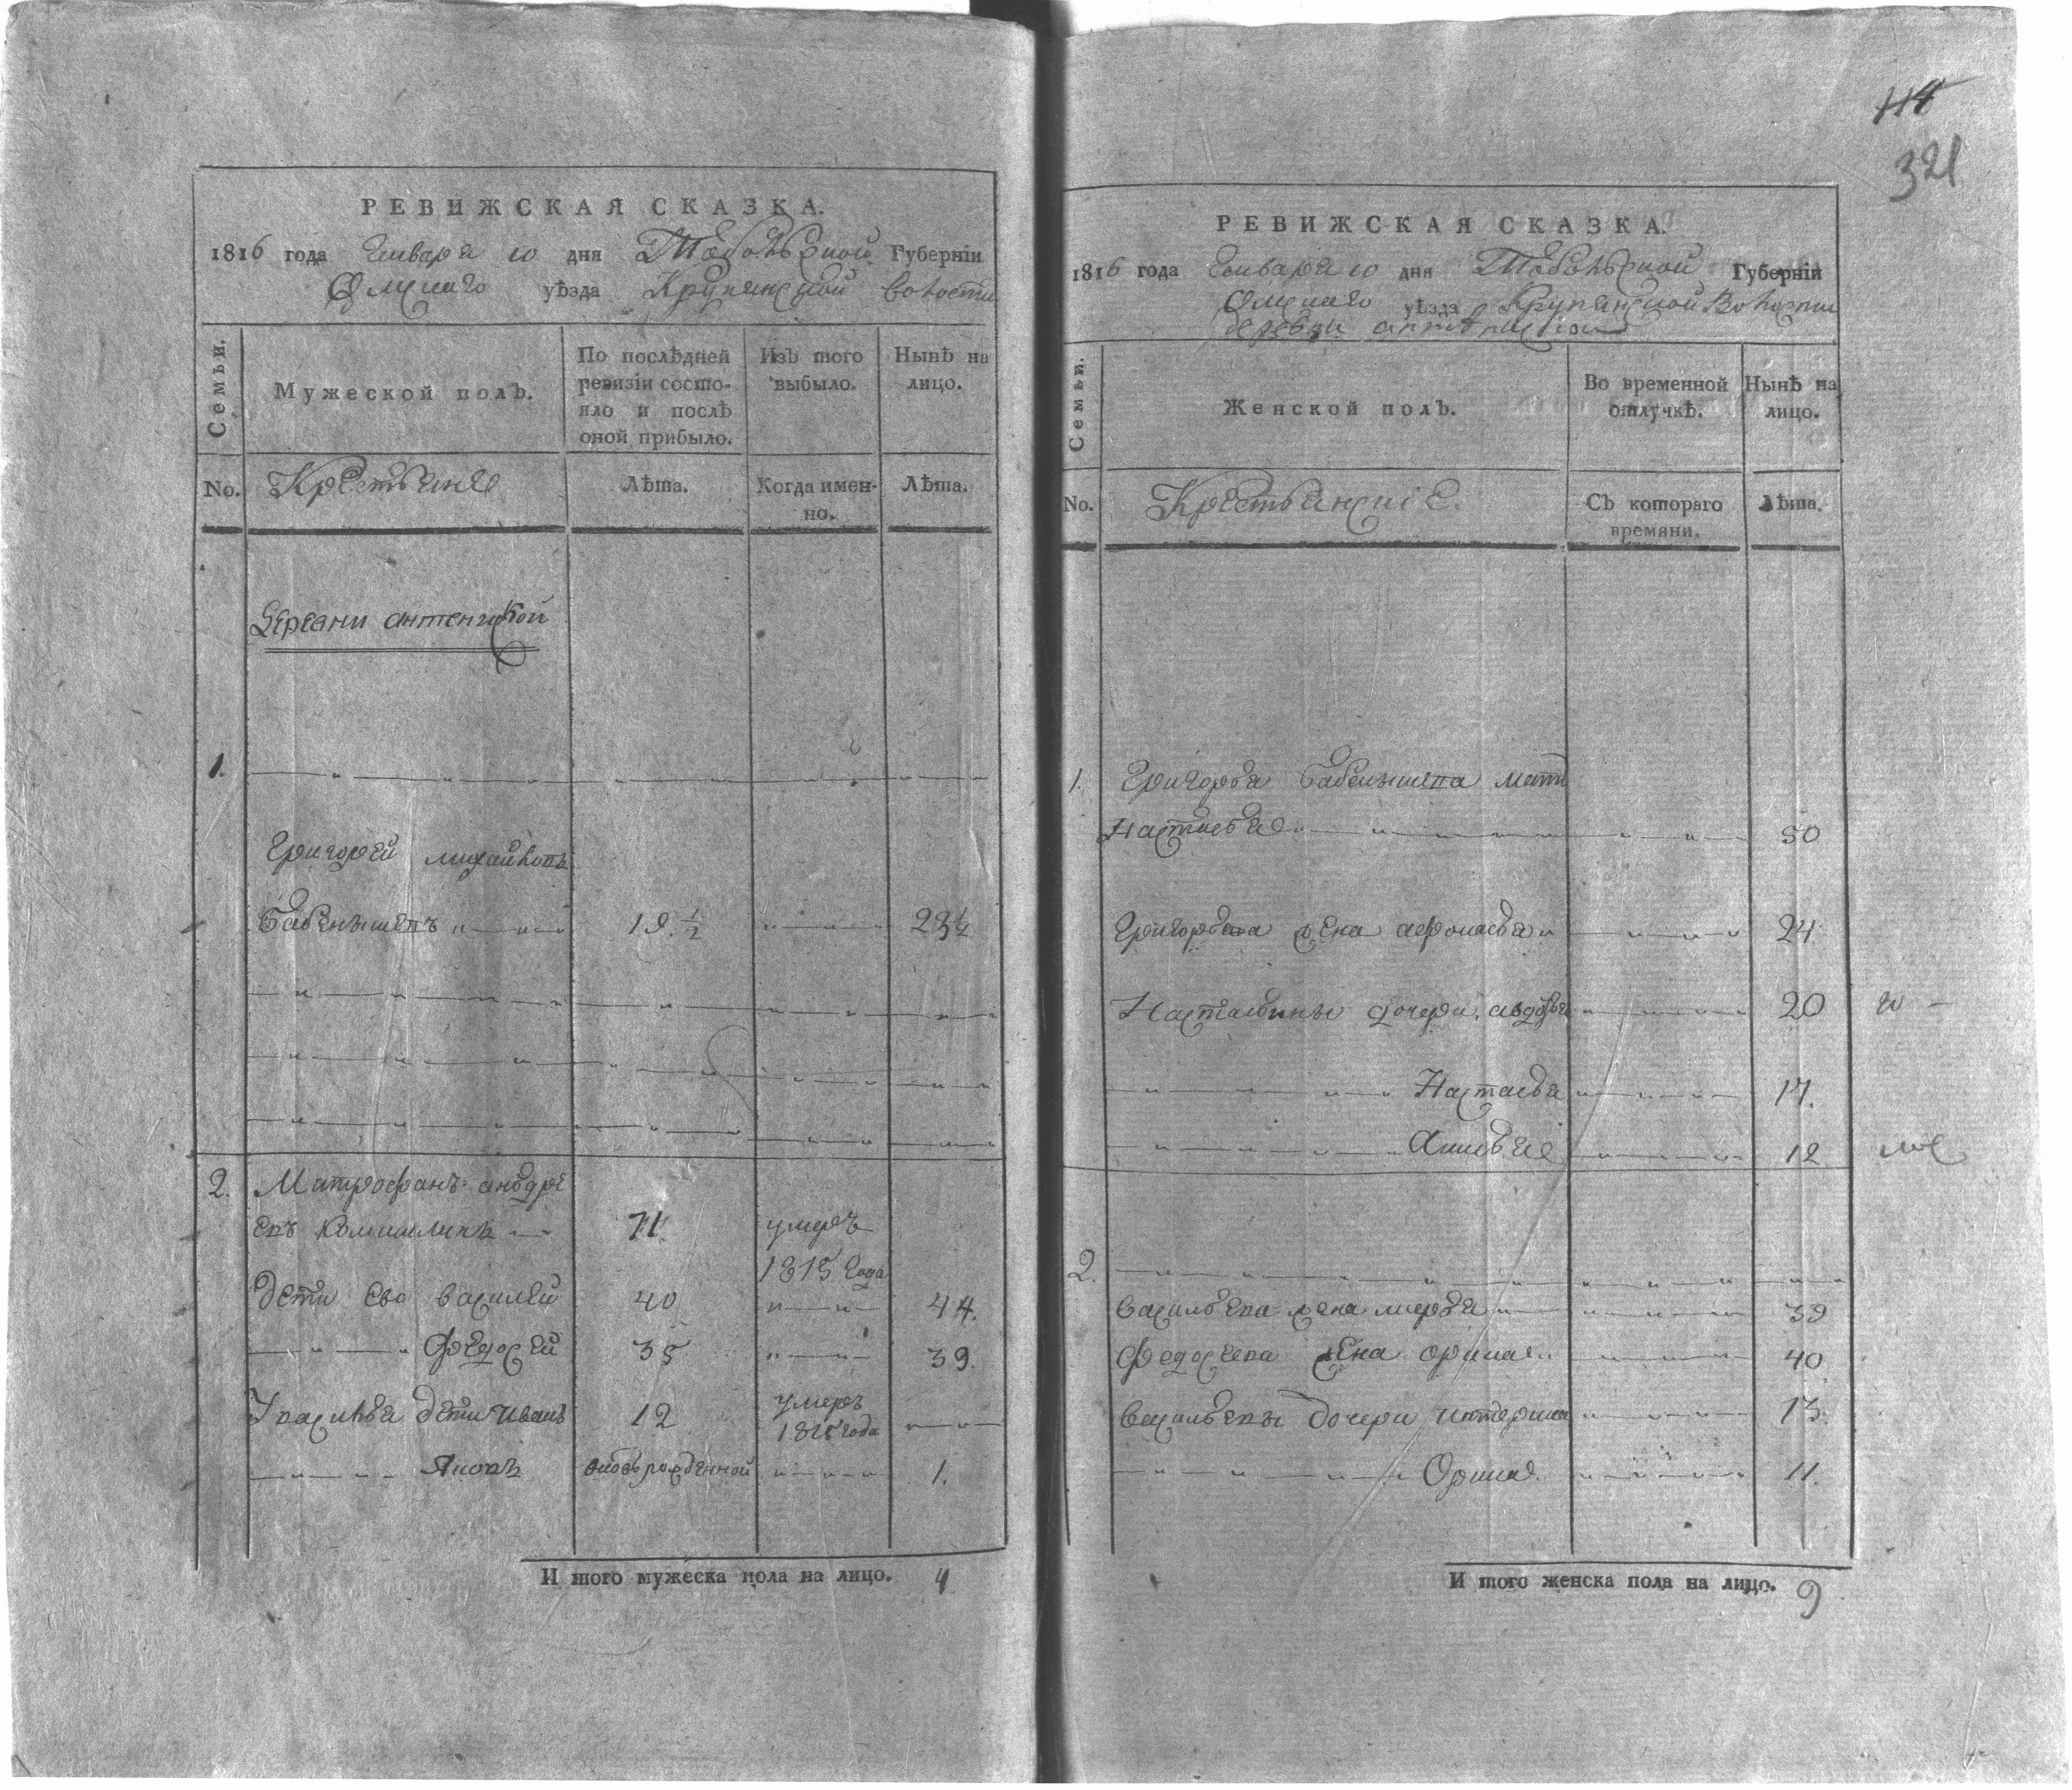 114
321
РЕВИЖСКАЯ СКАЗКА.
1816 года Генваря 10 дня Тобольской Губерніи
Омскаго уѣзда Крупянской волости
Семьи.
Мужеской полъ.
По послѣдней ревизіи состояло и послѣ оной прибыло.
Изъ того выбыло.
Нынѣ на лицо.
No.
Крестьяне
Лѣта.
Когда именно.
Лѣта.
1.
Григорей Михайловъ
19 1/2 23 1/2
2. Митрофанъ Андре
евъ 71. умеръ
1815 года
Дети ево Василей 40 44.
Федосей 35 39.
У Василья дети Иванъ 12 умеръ
1815 года
Яковъ вновьрожденной 1.
И того мужеска пола на лицо. 4
РЕВИЖСКАЯ СКАЗКА.
1816 года Генваря 10 дня Тобольской Губерніи
Омскаго уѣзда Крупянской Волости
деревни
Семьи.
Женской полъ.
Во временной отлучкѣ.
Нынѣ на лицо.
No.
Крестьянскіе.
Съ котораго времяни.
Лѣта.
1. Григорья мать
Настасья 50
Григорьева жена 24
Настасьины дочери Авдотья 20
Настасья 17.
12
2.
Васильева жена 39
Федосеева жена Орина 40
Васильевы дочери Катерина 13.
Орина 11.
И того женска пола на лицо. 9